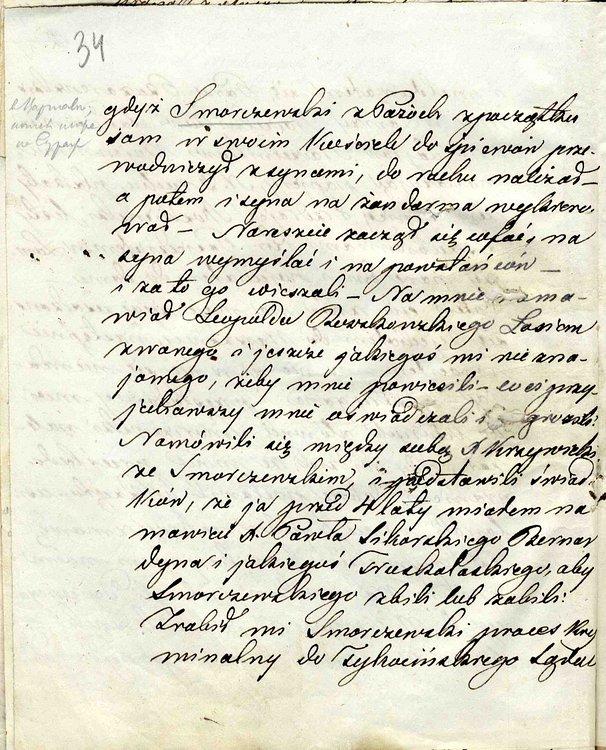 34
gdyż Smorczewski z Pażoch zpoczątku
sam w swoim Kościele do śpiewów prze-
wodniczył z synami, do ruchu należał –
a potem i syna na żandarma wykiero-
wał – Nareszcie zaczął się cofać, na
syna wymyślać i na powstańców –
i za to go wieszali – Na mnie nama-
wiał Leopolda Roszkowskiego
zwanego i jeszcze jakiegoś mi nie zna-
jomego, żeby mnie powiesili – co ci przy-
jechawszy mnie oświadczali i grozili
Namówili się między sobą X Krzywicki
ze Smorczewskim, i podstawili świad-
ków, że ja przed 4 laty miałem na-
mawiać X. Pawła Sikorskiego Bernar-
dyna i jakiegoś Truskolaskiego, aby
Smorczewskiego zbili lub zabili.
Zrobił mi Smorczewski proces kry-
minalny do Tykocińskiego Sądu